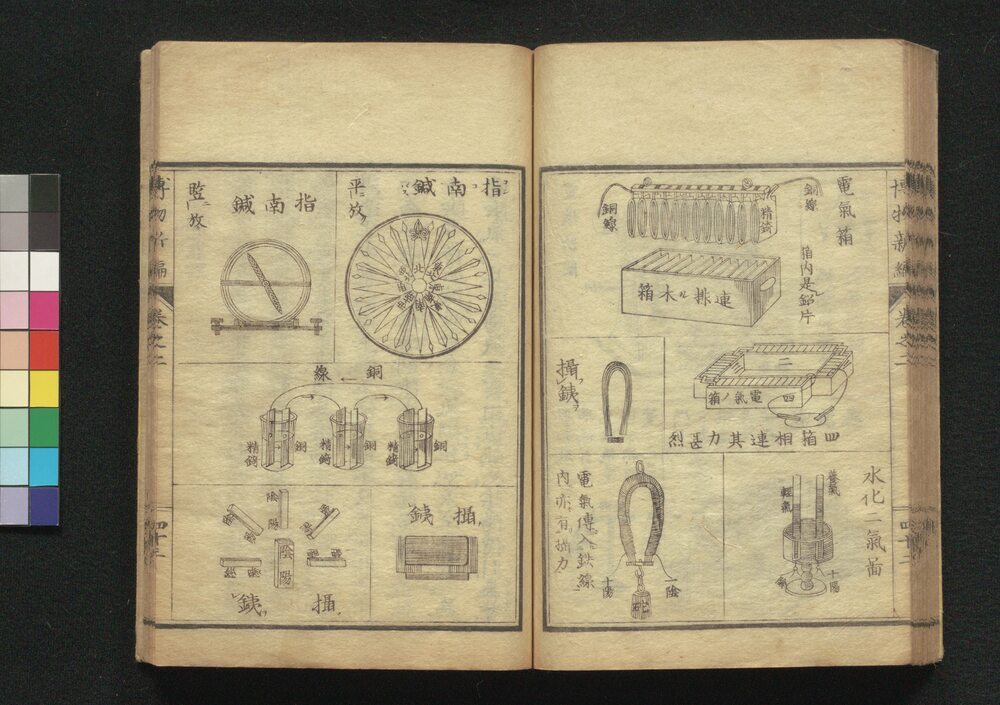 博物新編
卷之二
電氣箱
銅線
精錡
銅線
箱内是鉛片
連排ル木箱
二
四
電氣ノ箱
四箱相連其力甚烈
攝鋨
水化二氣啚
養氣
輕氣
十陽
電氣傳入鉄線
内亦有攝力
一陰
十陽
指南鍼
平放
北
指南鍼
監放
銅線
銅
精錡
銅
精錡
銅
精錡
攝鋨
陰
陽
陰
陽
攝鋨
博物新編
卷之二
四十三